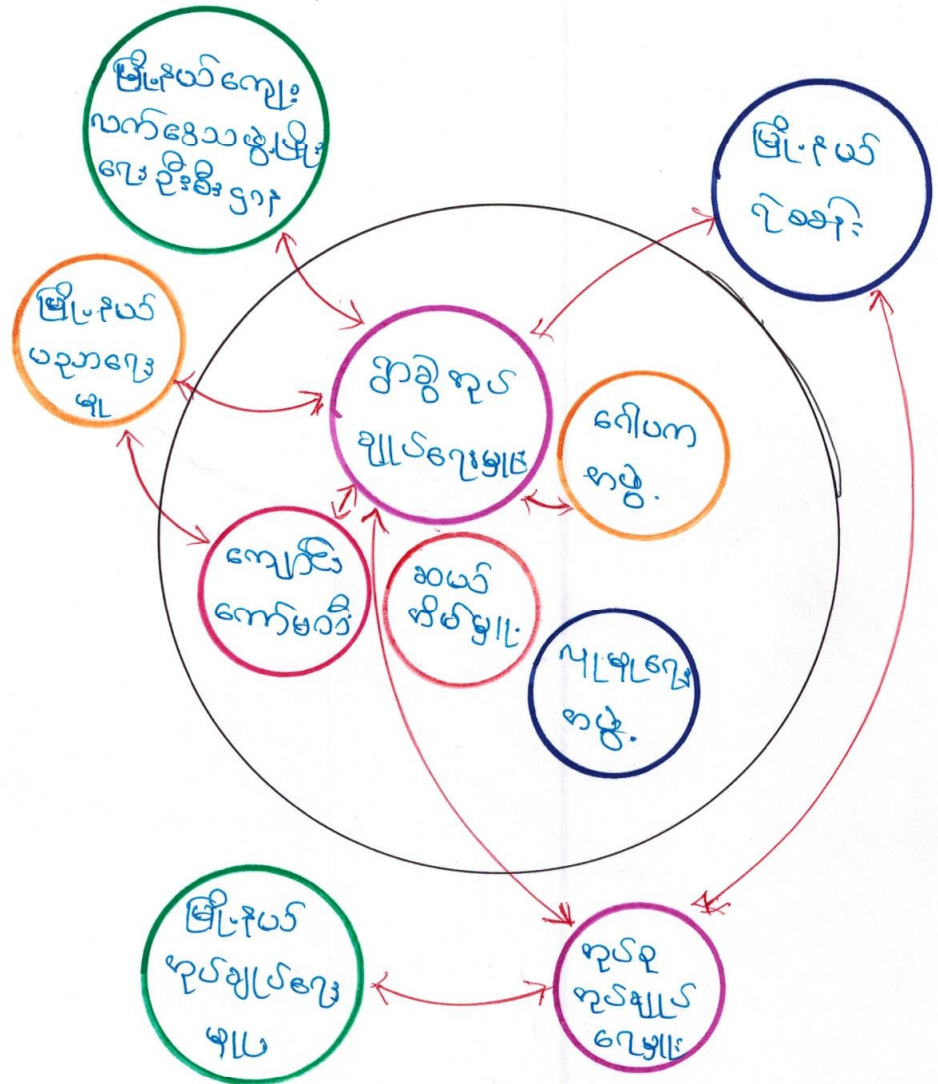 မြို့နယ်ကျေး
လက်ဒေသဖွံ့ဖြိုး
ရေးဦးစီးဌာန
မြို့နယ်
ရဲစခန်း
မြို့နယ်
ပညာရေး
မှုး
ရွာခွဲအုပ်
ချုပ်ရေးမှူး
ဂေါပက
အဖွဲ့
ကျောင်း
ကော်မတီ
ဆယ်
အိမ်မှူး
လူမှုရေး
အဖွဲ့
မြို့နယ်
အုပ်ချုပ်ရေး
မှူး
အုပ်စု
အုပ်ချုပ်
ရေးမှူး